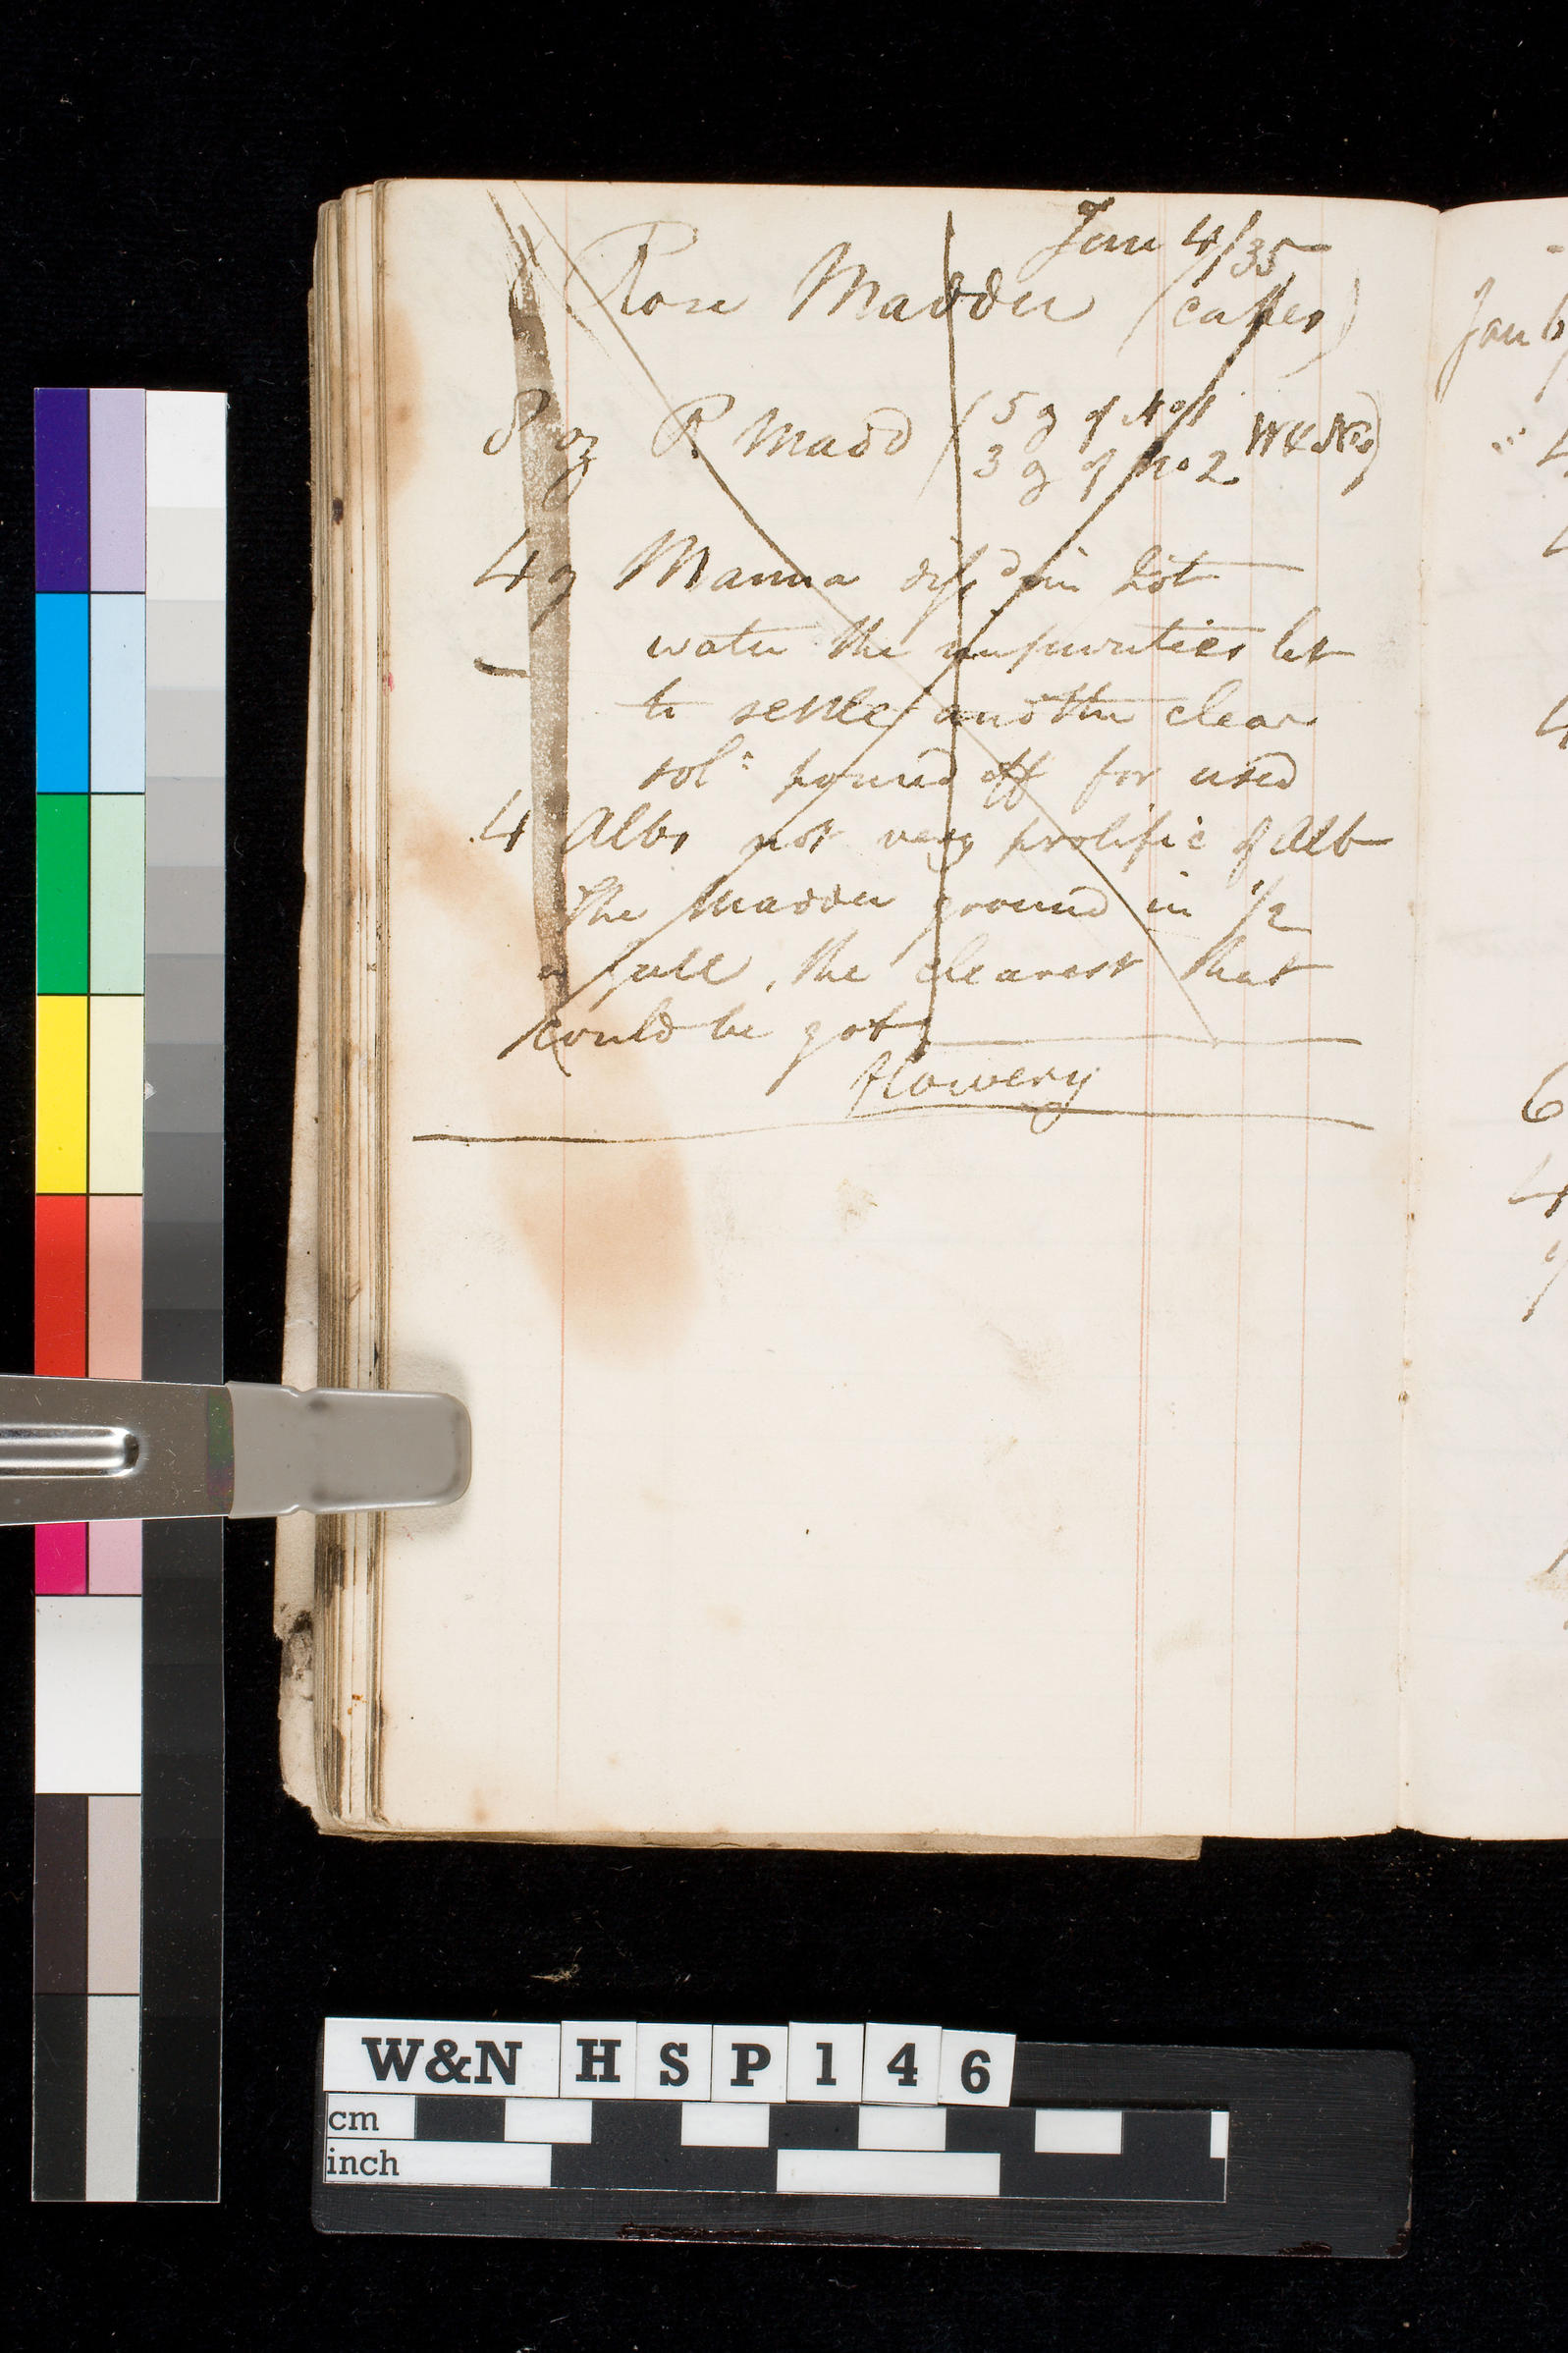 Jan 4/35
Rose Madder (cakes)
8 oz R Madd (5 z of No 1
3 z of No 2 W & No)
4 z Manna diss^d in hot
water the impurities let
to settle and the clear
sol^n poured off for used
4 Albs not very prolific of Alb
The Madder ground in 1/2
a gall, the clearest that
could be got
flowery
Jan 6
4
4
6
4
W&N HSP146
cm
inch